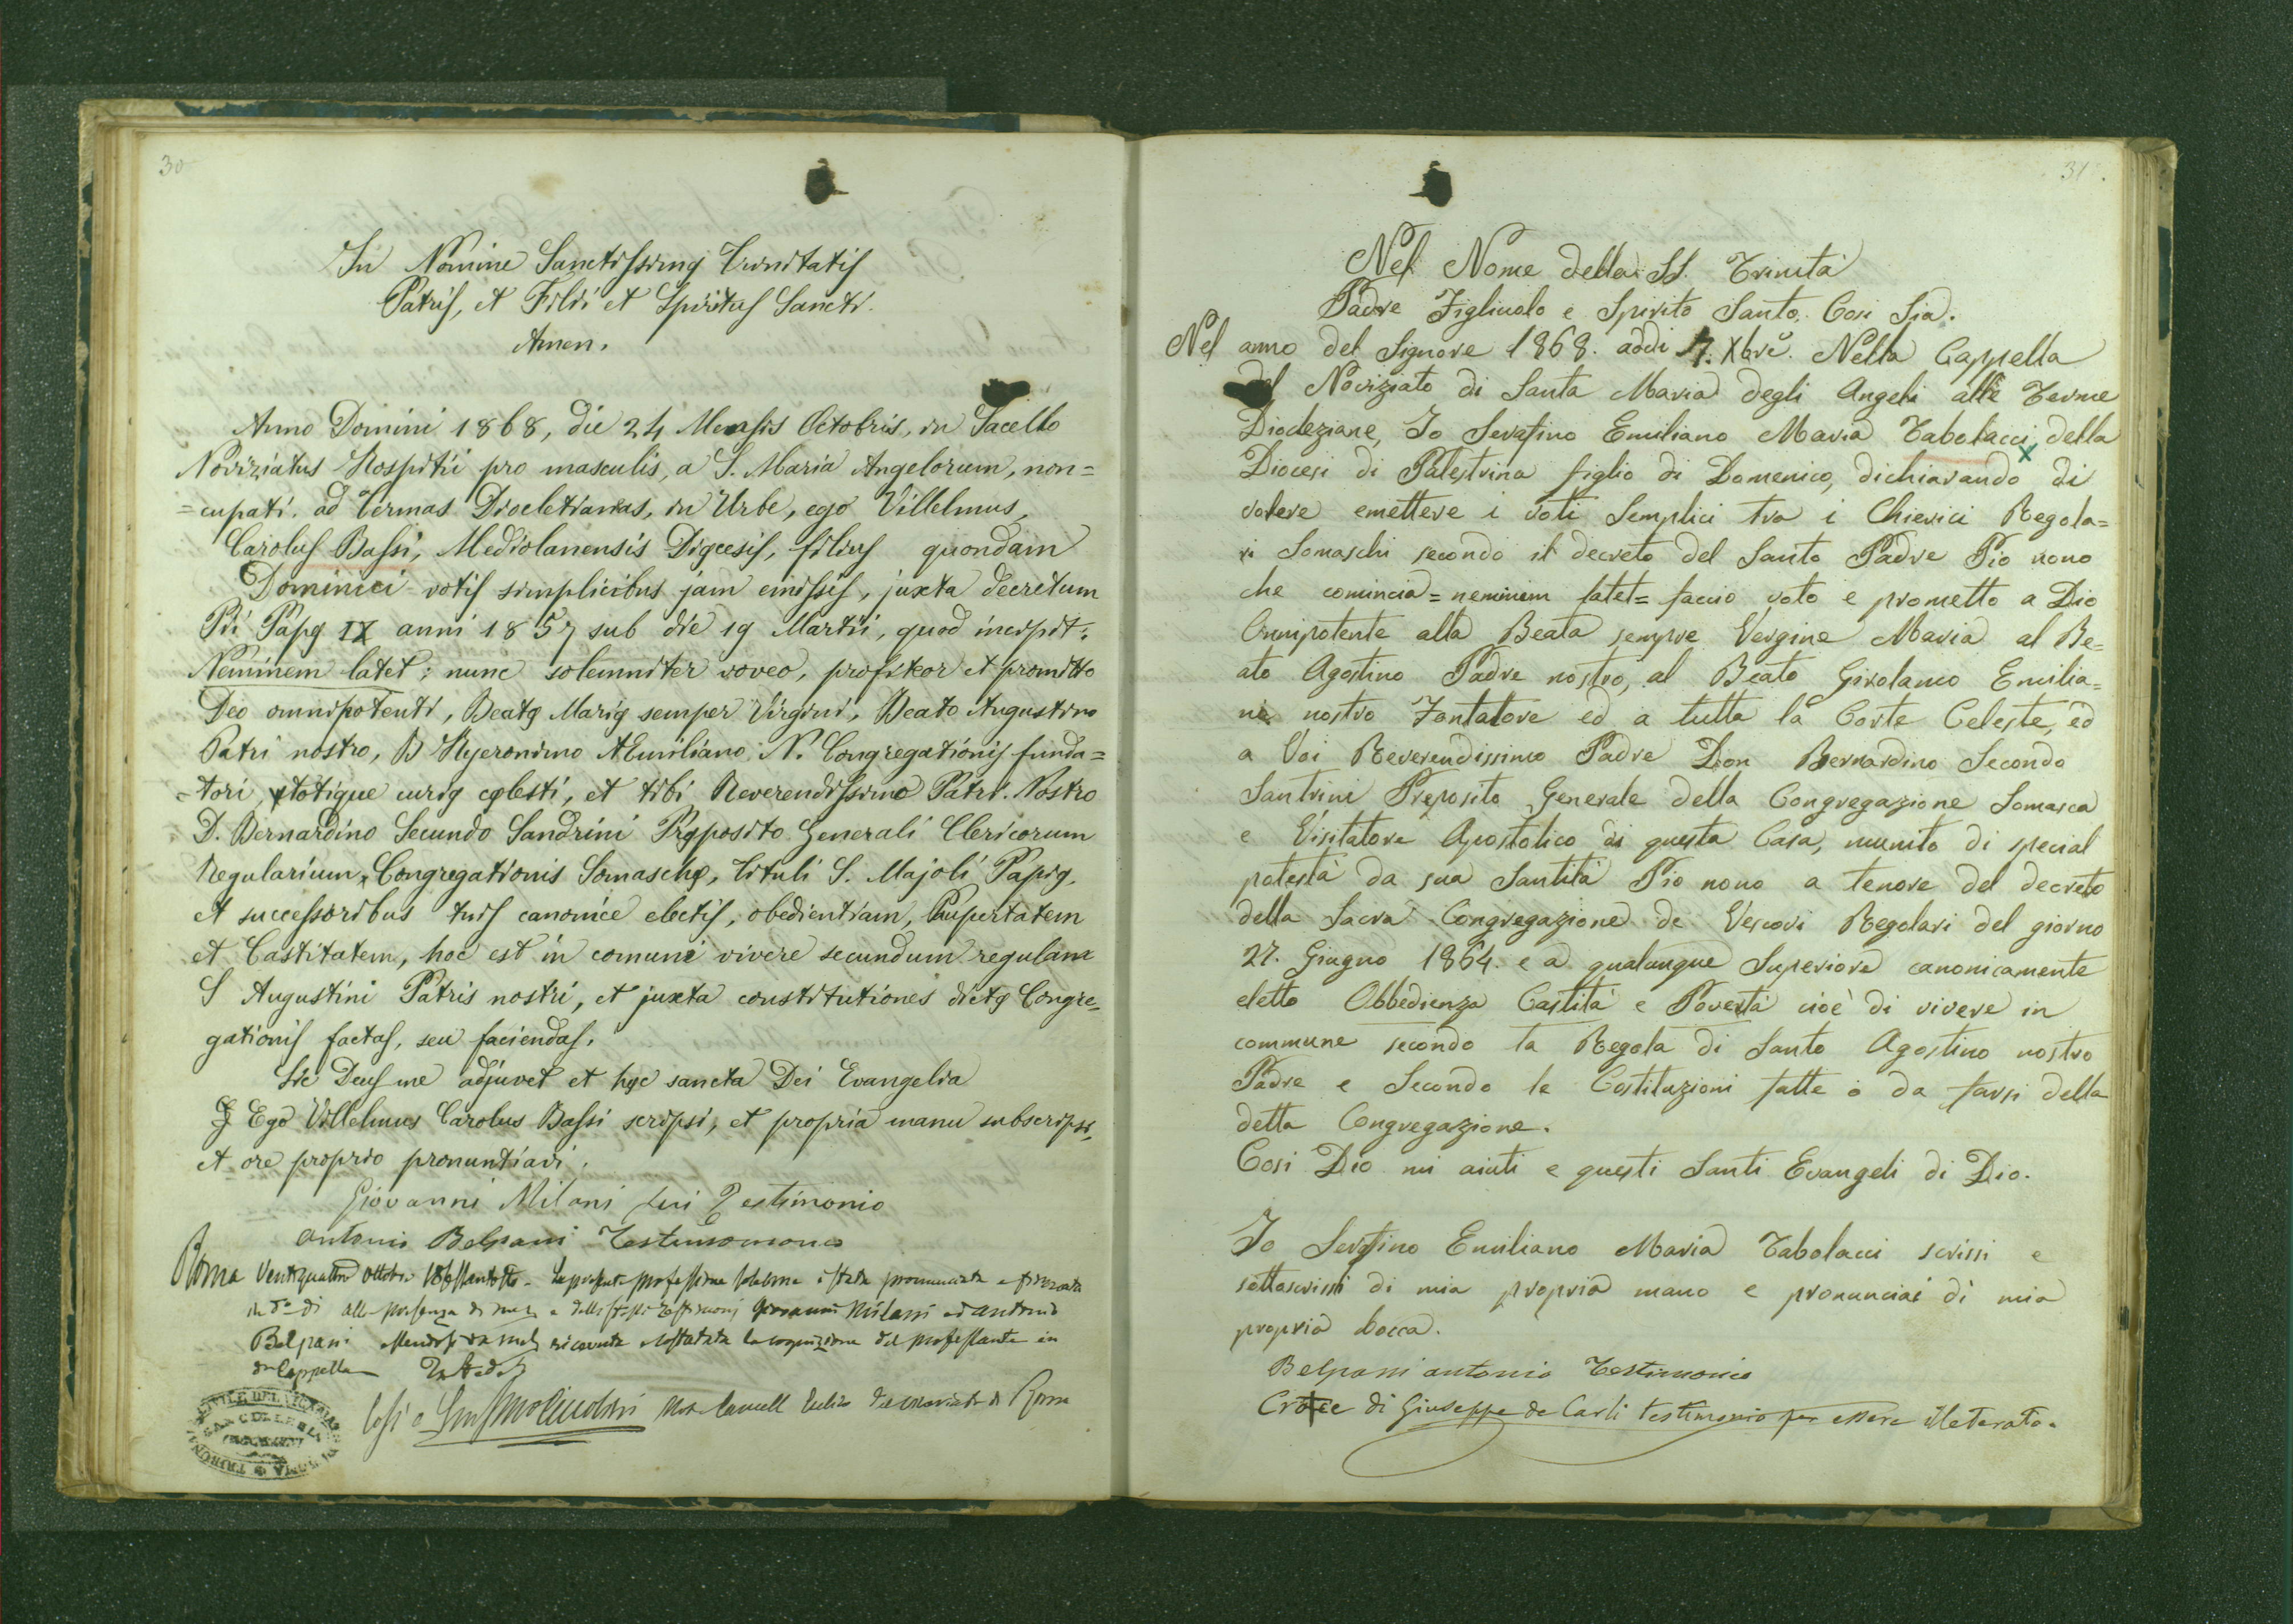 30
In Nomine Sanctissimę Trinitatis
Patris, et Filii et Spiritus Sancti.
Amen.
Anno Domini 1868, die 24 Mensis Octobris, in Sacello
Noviziatus Hospitii pro masculis, a S. Maria Angelorum, non=
=cupati. ad Termas Diocletianas, in Urbe, ego Villelmus,
Carolus Bassi, Mediolanensis Digcesis, filius quondam
Dominici votis simplicibus jam emissis, juxta decretum
Pii Papę IX anni 1857 sub die 19 Martii, quod incipit:
Neminem latet; nunc solemniter voveo, profiteor et promitto
Deo omnipotenti, Beatę Marię semper Virgini, Beato Augustino
Patri nostro, B Hyeronimo AEmiliano N. Congregationis funda=
=tori, totique curię cęlesti, et tibi Reverendissimo Patri Nostro
D. Bernardino Secundo Sandrini Pręposito Generali Clericorum
Regularium, Congregationis Somaschę, Tituli S. Majoli Papię,
et successoribus tuis canonice electis, obedientiam, Paupertatem
et Castitatem, hoc est in comuni vivere secundum regulam
S Augustini Patris nostri, et juxta constitutiones dictę Congre=
gationis factas, seu faciendas.
Sic Deus me adjuvet et hęc sancta Dei Evangelia
Ego Villelmus Carolus Bassi scripsi, et propria manu subscripsi,
et ore proprio pronuntiavi.
Giovanni Milani fui Testimonio
Antonio Belpani Testimomonio
Roma Ventiquattro Ottobre - La presente professione solenne è stata pronunciata e firmata
in do di alla presenza di me e delli testimonj Giovanni Milani ed Antonio
Belpani ricevuta la cognizione del professante in
da Cappella
Così è di Roma
31.
Nel Nome della SS. Trinità
Padre Figliuolo e Spirito Santo. Cosi Sia.
Nel anno del Signore 1868. addi 7. Xbre. Nella Cappella
del Noviziato di Santa Maria degli Angeli alle Terme
Diocleziane, Io Serafino Emiliano Maria Tabolacci della
Diocesi di Palestrina figlio di Domenico, dichiarando di
volere emettere i voti Semplici tra i Chierici Regola=
ri Somaschi secondo il decreto del Santo Padre Pio nono
che comincia = neminem latet = faccio voto e prometto a Dio
Omnipotente alla Beata sempre Vergine Maria al Be=
ato Agostino Padre nostro, al Beato Girolamo Emilia=
ni nostro Fontatore ed a tutta la Corte Celeste, ed
a Voi Reverendissimo Padre Don Bernardino Secondo
Santrini Preposito Generale della Congregazione Somasca
e Visitatore Apostolico di questa Casa, munito di special
potestà da sua Santità Pio nono a tenore del decreto
della Sacra Congregazione de Vescovi Regolari del giorno
27. Giugno 1864. e a qualunque Superiore canonicamente
eletto Obbedienza Castità e Povertà cioè di vivere in
commune secondo la Regola di Santo Agostino nostro
Padre e Secondo le Costituzioni fatte o da farsi della
detta Congregazione.
Cosi Dio mi aiuti e questi Santi Evangeli di Dio.
Io Serafino Emiliano Maria Tabolacci scrissi e
sottoscrissi di mia propria mano e pronunciai di mia
propria bocca.
Belpani antonio Testimonio
Croce di Giuseppe de Carli testimonio per essere illeterato.